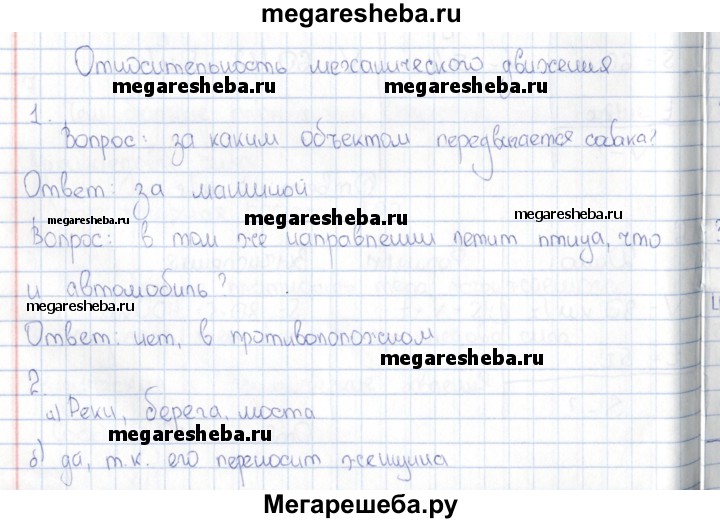 megaresheba.ru
Относительность механического движения
megaresheba.ru megaresheba.ru
1.
Вопрос: за каким объектом передвигается собака?
Ответ: за машиной
megaresheba.ru megaresheba.ru megaresheba.ru
Вопрос: в том же направлении летит птица, что
и автомобиль?
megaresheba.ru
Ответ: нет, в противоположном
megaresheba.ru
2.
а) Реки, берега, моста
megaresheba.ru
б) да, т.к. его переносит женщина
Мегарешеба.ру